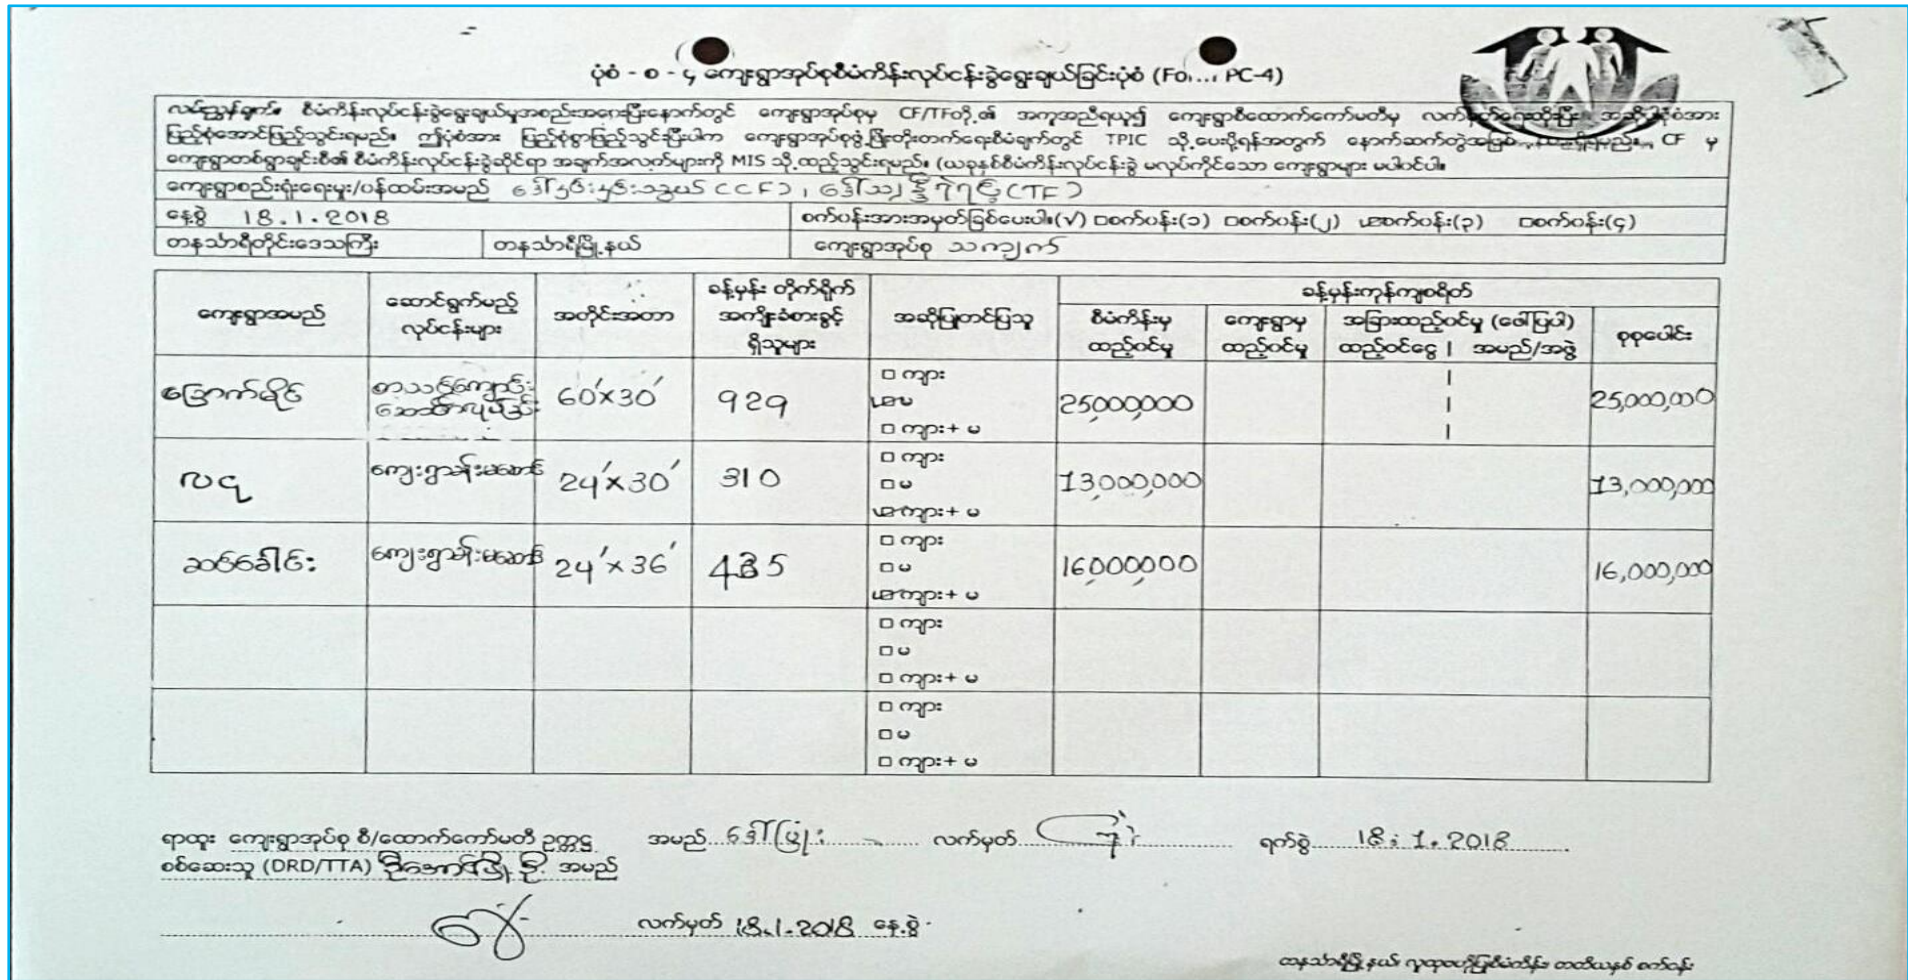 ပုံစံ - စ - ၄ ကျေးရွာအုပ်စုစီမံကိန်းလုပ်ငန်းခွဲရွေးချယ်ခြင်းပုံစံ (Fo... PC-4)
လမ်းညွှန်ချက်။ စီမံကိန်းလုပ်ငန်းခွဲရွေးချယ်မှုအစည်းအဝေးပြီးနောက်တွင် ကျေးရွာအုပ်စုမှ CF/TFတို့၏ အကူအညီရယူ၍ ကျေးရွာစီထောက်ကော်မတီမှ လက်မှတ်ရေးထိုးပြီး အဆိုပါပုံစံအား
ပြည့်စုံအောင်ဖြည့်သွင်းရမည်။ ဤပုံစံအား ပြည့်စုံစွာဖြည့်သွင်းပြီးပါက ကျေးရွာအုပ်စုဖွံ့ဖြိုးတိုးတက်ရေးစီမံချက်တွင် TPIC သို့ပေးပို့ရန်အတွက် နောက်ဆက်တွဲအဖြစ် CF မှ
ကျေးရွာတစ်ရွာချင်းစီ၏ စီမံကိန်းလုပ်ငန်းခွဲဆိုင်ရာ အချက်အလက်များကို MIS သို့ထည့်သွင်းရမည်။ (ယခုနှစ်စီမံကိန်းလုပ်ငန်းခွဲ မလုပ်ကိုင်သော ကျေးရွာများ မပါဝင်ပါ။
ကျေးရွာစည်းရုံးရေးမှူး/ဝန်ထမ်းအမည် (CF), (TF)
နေ့စွဲ 18.1.2018 စက်ဝန်းအားအမှတ်ခြစ်ပေးပါ။(√) □စက်ဝန်း(၁) □စက်ဝန်း(၂) ☑စက်ဝန်း(၃) □စက်ဝန်း(၄)
တနင်္သာရီတိုင်းဒေသကြီး တနင်္သာရီမြို့နယ် ကျေးရွာအုပ်စု သကျက်
ခန့်မှန်းကုန်ကျစရိတ်
ကျေးရွာအမည် ဆောင်ရွက်မည့် လုပ်ငန်းများ အတိုင်းအတာ ခန့်မှန်း တိုက်ရိုက် အကျိုးခံစားခွင့် ရှိသူများ အဆိုပြုတင်ပြသူ စီမံကိန်းမှ ထည့်ဝင်မှု ကျေးရွာမှ ထည့်ဝင်မှု အခြားထည့်ဝင်မှု (ဖော်ပြပါ) ထည့်ဝင်ငွေ | အမည်/အဖွဲ့ စုစုပေါင်း
□ ကျား
စာသင်ကျောင်း 60'x30' 929 ☑မ 25,000,000 25,000,000
□ ကျား+ မ
□ ကျား
ကျေးရွာခန်းမဆောင် 24'x30' 310 □ မ 13,000,000 13,000,000
☑ကျား+ မ
□ ကျား
ဆင်ခေါင်း ကျေးရွာခန်းမဆောင် 24'x36' 435 □ မ 16,000,000 16,000,000
☑ကျား+ မ
□ ကျား
□ မ
□ ကျား+ မ
□ ကျား
□ မ
□ ကျား+ မ
ရာထူး ကျေးရွာအုပ်စု စီ/ထောက်ကော်မတီ ဥက္ကဋ္ဌ အမည် လက်မှတ် ရက်စွဲ 18.1.2018
စစ်ဆေးသူ (DRD/TTA) အမည်
လက်မှတ် 18.1.2018 နေ့စွဲ
တနင်္သာရီမြို့နယ်၊ လူထုဗဟိုပြုစီမံကိန်း၊ တတိယနှစ် စက်ဝန်း